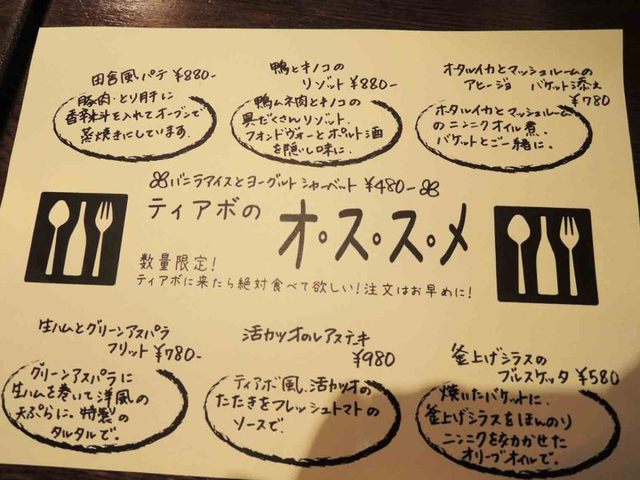 田舎風パテ ¥880-
豚肉・とり肝に
香辛料を入れてオーブンで
蒸焼きにしています。
鴨とキノコの
リゾット ¥880-
鴨ムネ肉とキノコの
具だくさんリゾット。
フォンドヴォーとポルト酒
を隠し味に。
ホタルイカとマッシュルームの
アヒージョ バケット添え
¥780
ホタルイカとマッシュルーム
のニンニクオイル煮。
バケットとご一緒に。
バニラアイスとヨーグルトシャーベット ¥480-
ティアボの
オ・ス・ス・メ
数量限定!
ティアボに来たら絶対食べて欲しい!注文はお早めに!
生ハムとグリーンアスパラ
フリット ¥780-
グリーンアスパラに
生ハムを巻いて洋風の
天ぷらに。特製の
タルタルで。
活カツオのレアステキ
¥980
ティアボ風、活カツオの
たたきをフレッシュトマトの
ソースで。
釜上げシラスの
ブルスケッタ ¥580
焼いたバケットに、
釜上げシラスをほんのり
ニンニクをきかせた
オリーブオイルで。